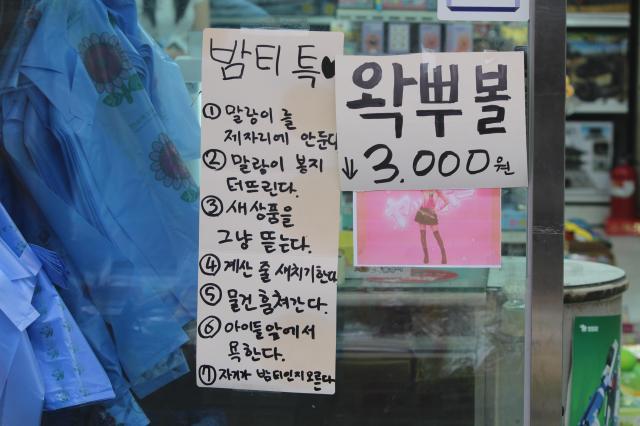 밤티 특
① 말랑이를
제자리에 안둔다
② 말랑이 봉지
터뜨린다.
③ 새상품을
그냥 뜯는다.
④ 계산 줄 새치기한다
⑤ 물건 훔쳐간다.
⑥ 아이들 앞에서
욕한다.
⑦ 자기가 밤티인지 모른다
왁뿌볼
↓ 3,000원